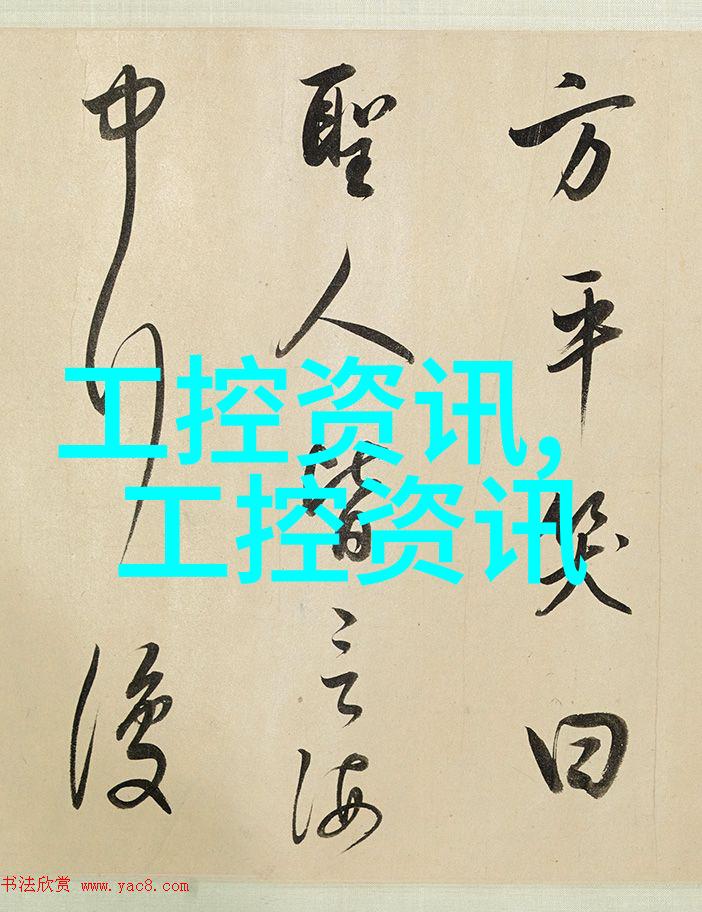 方平笑曰
聖人皆言海
中行復
工控资讯,
工控资讯
书法欣赏 www.yac8.com